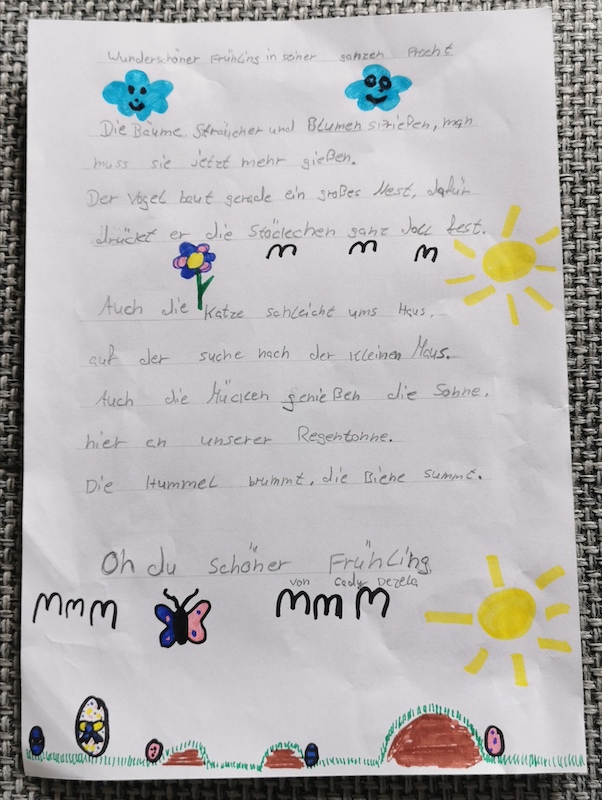 Wunderschöner Frühling in seiner ganzen Pracht
Die Bäume Sträucher und Blumen sprießen, man
muss sie jetzt mehr gießen.
Der Vogel baut gerade ein großes Nest, dafür
drücket er die Stöckchen ganz doll fest.
Auch die Katze schleicht ums Haus,
auf der suche nach der kleinen Maus.
Auch die Mücken genießen die Sonne,
hier an unserer Regentonne.
Die Hummel brummt, die Biene summt.
Oh du schöner Frühling
von